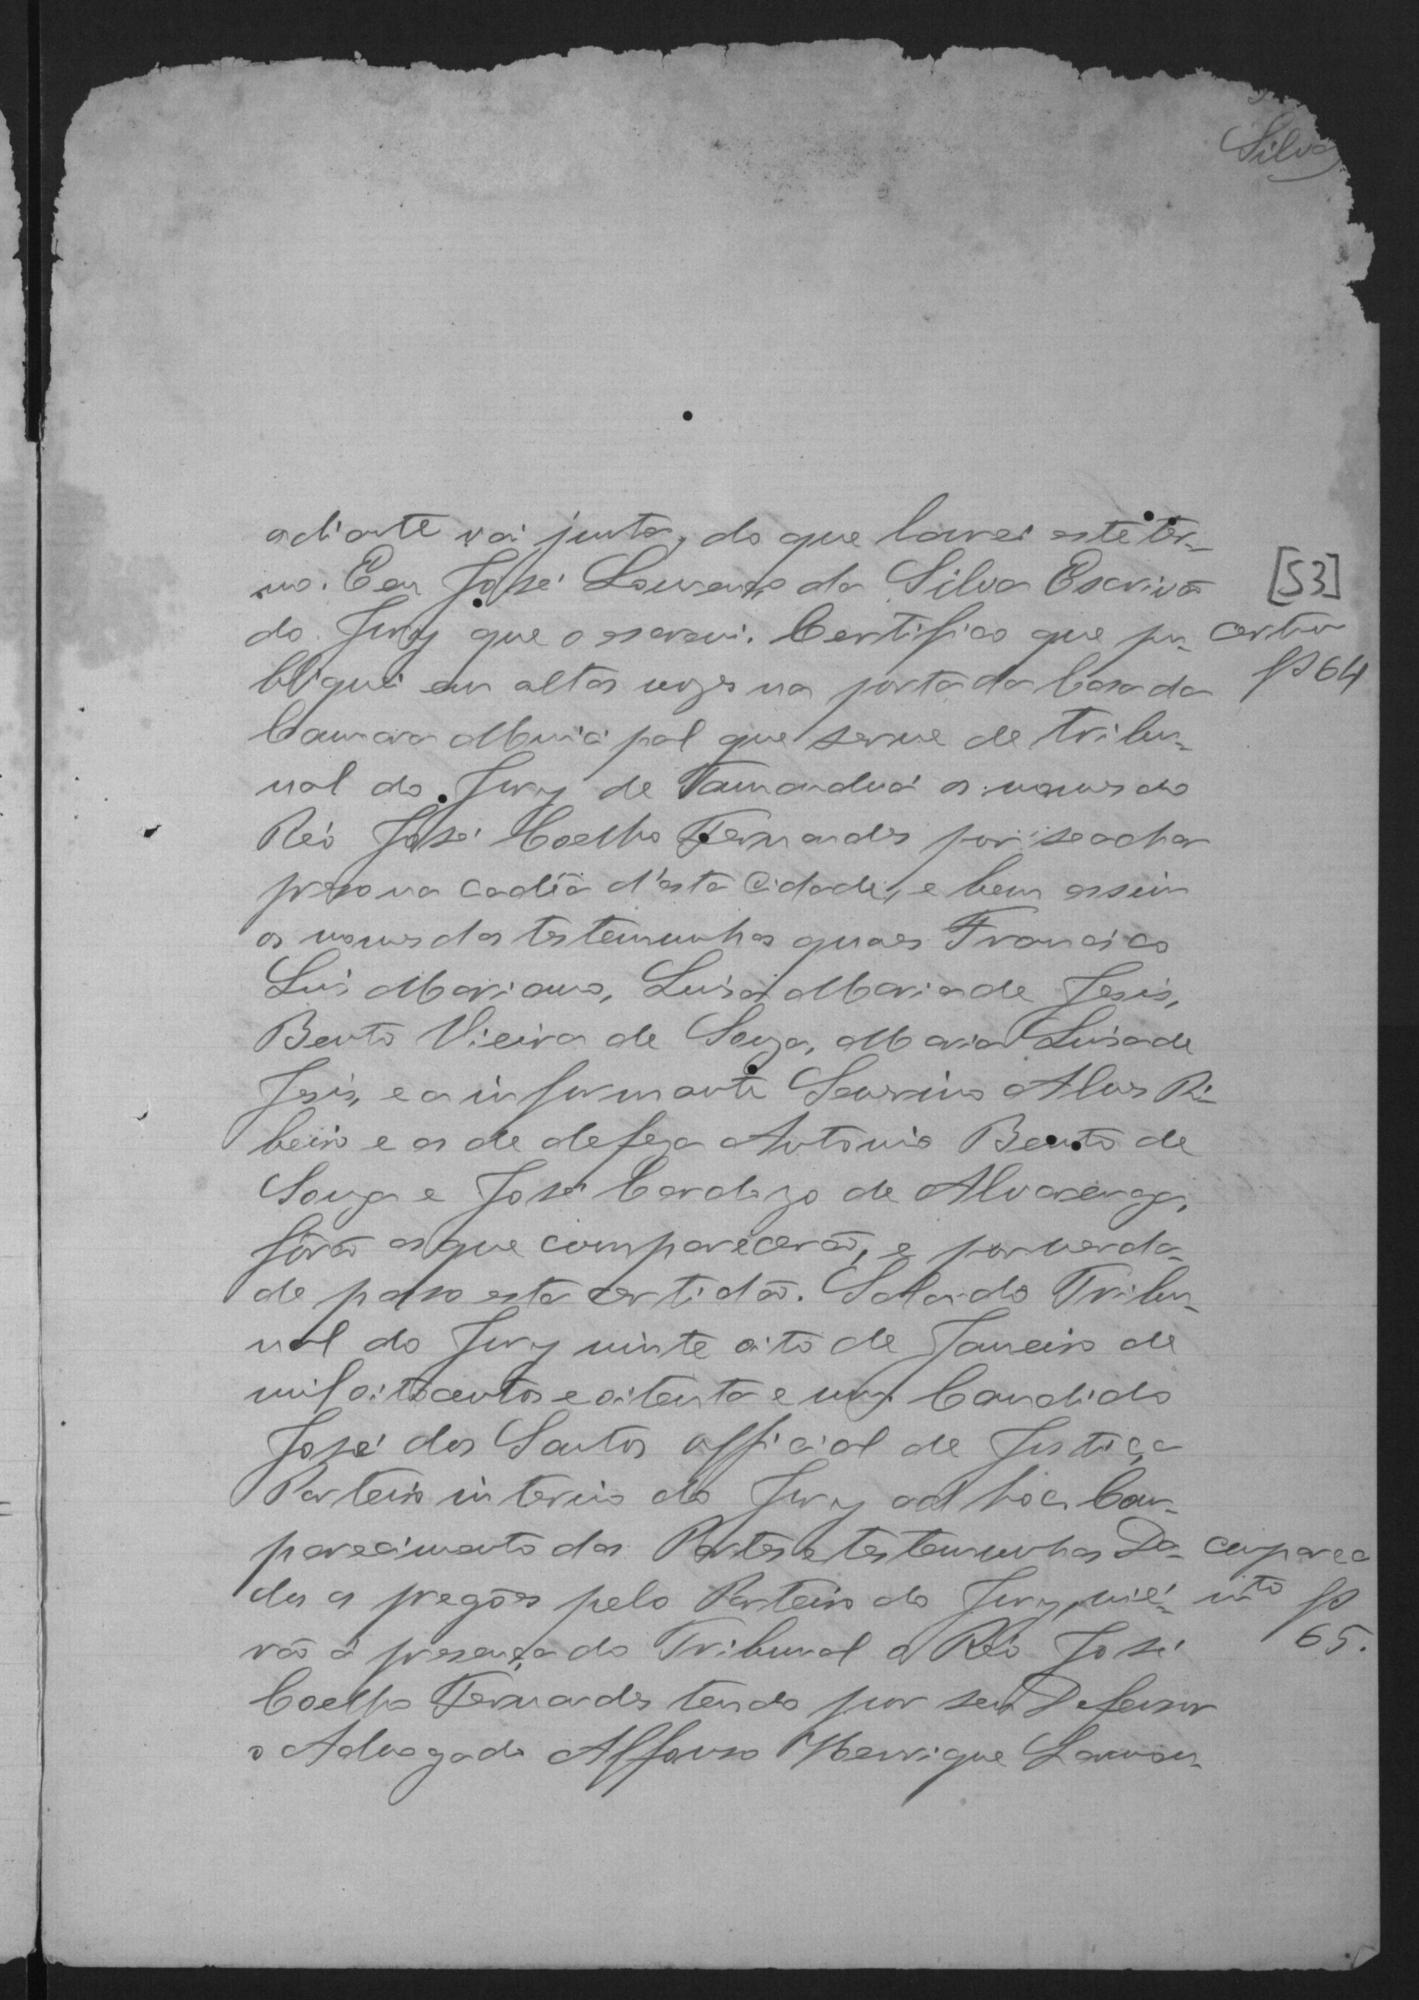 Silva
adiante vai junta, do que lavrei este ter-
mo. Eu José Lourenço da Silva Escrivão
[53]
do Jury que o escrevi. Certifico que pu-
bliquei em altas vozes na porta da Casa da
p 64
Camara Municipal que serve de tribu-
nal do Jury de Tamanduá os nomes do
Réo José Coelho Fernandes por se achar
preso na cadêa d'esta Cidade, e bem assim
os nomes das testemunhas quaes Francisco
Luis Mariano, Luisa Maria de Jesus,
Bento Vieira de Souza, Maria Luisa de
Jesus, e a informante Severino Alves Ri-
beiro e as de defeza Antonio Bento de
Souza e José Cardozo de Alvarenga,
fôrão os que comparecerão, e por verda-
de passo esta certidão. Sala do Tribu-
nal do Jury vinte oito de Janeiro de
mil oitocentos e oitenta e um. Candido
José dos Santos official de Justiça
Porteiro interino do Jury ad hoc. Com-
parecimento das Partes e testemunhas Da-
comparec
das os pregões pelo Porteiro do Jury, vié-
mto p
rão á presença do Tribunal o Réo José
65.
Coelho Fernandes tendo por seu Defensor
o Advogado Affonso Henrique